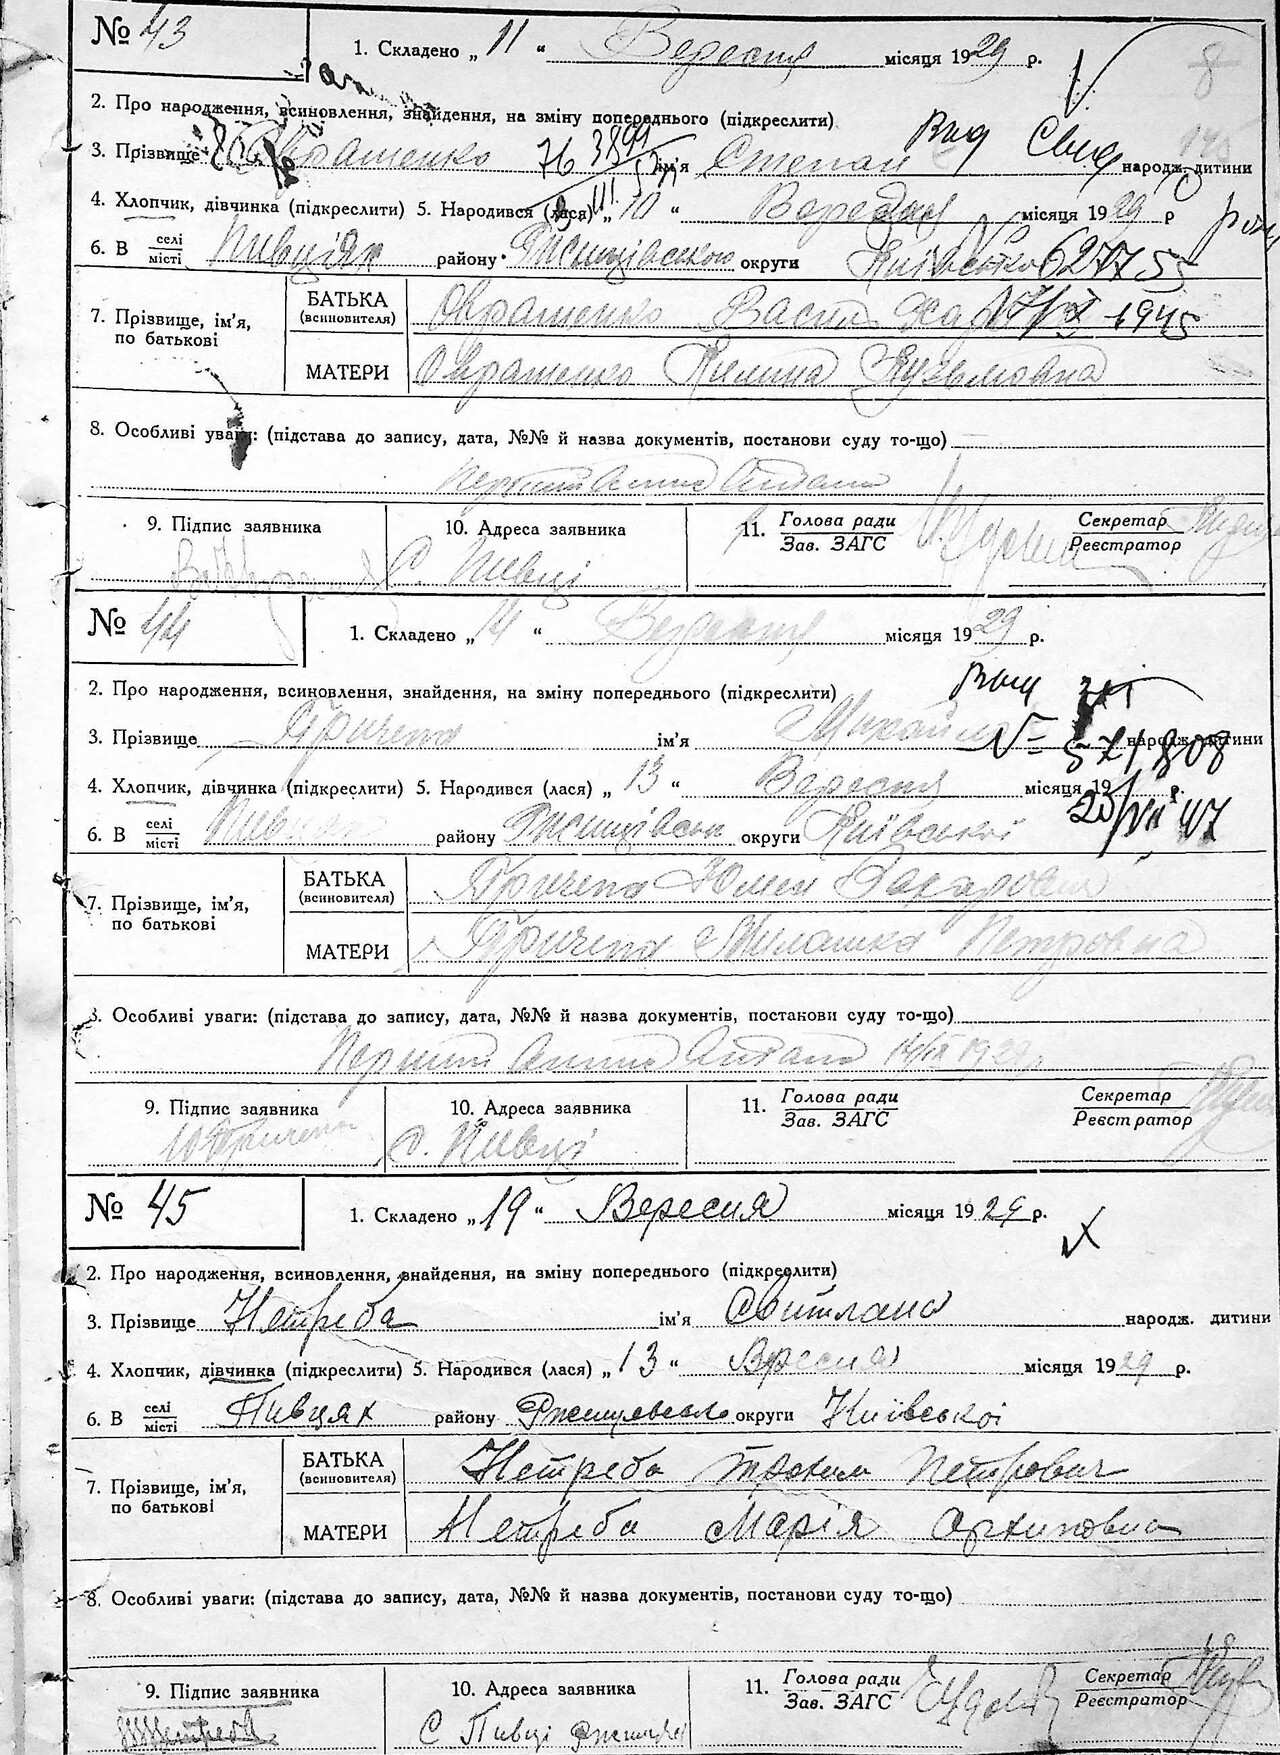 № 43
1. Складено „ 11 “ Вересня місяця 1929 р.
8
2. Про народження, всиновлення, знайдення, на зміну попереднього (підкреслити)
3. Прізвище Овраменко ім’я Степан народж. дитини
Вид Свид
4. Хлопчик, дівчинка (підкреслити) 5. Народився (лася) „ 10 “ Вересня місяця 1929 р
6. В селі/місті Пивцях району Ржищівського округи Київської
№ 627755
7. Прізвище, ім’я, по батькові
БАТЬКА (всиновителя) Овраменко Василь
1945
МАТЕРИ Овраменко Килина Кузьмовна
8. Особливі уваги: (підстава до запису, дата, №№ й назва документів, постанови суду то-що)
9. Підпис заявника
10. Адреса заявника
с. Пивці
11. Голова ради/Зав. ЗАГС
Секретар/Реєстратор
№ 44
1. Складено „ 14 “ Вересня місяця 1929 р.
2. Про народження, всиновлення, знайдення, на зміну попереднього (підкреслити)
3. Прізвище Причепа ім’я Михайло народж. дитини
№ 571808
4. Хлопчик, дівчинка (підкреслити) 5. Народився (лася) „ 13 “ Вересня місяця 19 р.
6. В селі/місті Пивцях району Ржищівськ округи Київської
25/VII 47
7. Прізвище, ім’я, по батькові
БАТЬКА (всиновителя) Причепа Юхим
МАТЕРИ Причепа Милашка Петровна
8. Особливі уваги: (підстава до запису, дата, №№ й назва документів, постанови суду то-що)
14/IX 1929 р
9. Підпис заявника
Ю Причепа
10. Адреса заявника
с. Пивці
11. Голова ради/Зав. ЗАГС
Секретар/Реєстратор
№ 45
1. Складено „ 19 “ Вересня місяця 1929 р.
2. Про народження, всиновлення, знайдення, на зміну попереднього (підкреслити)
3. Прізвище Нетреба ім’я Світлана народж. дитини
4. Хлопчик, дівчинка (підкреслити) 5. Народився (лася) „ 13 “ Вересня місяця 1929 р.
6. В селі/місті Пивцях району Ржищівсько округи Київської
7. Прізвище, ім’я, по батькові
БАТЬКА (всиновителя) Нетреба Трохим Петрович
МАТЕРИ Нетреба Марія Архиповна
8. Особливі уваги: (підстава до запису, дата, №№ й назва документів, постанови суду то-що)
9. Підпис заявника
Нетреба
10. Адреса заявника
С Пивці
11. Голова ради/Зав. ЗАГС
Секретар/Реєстратор